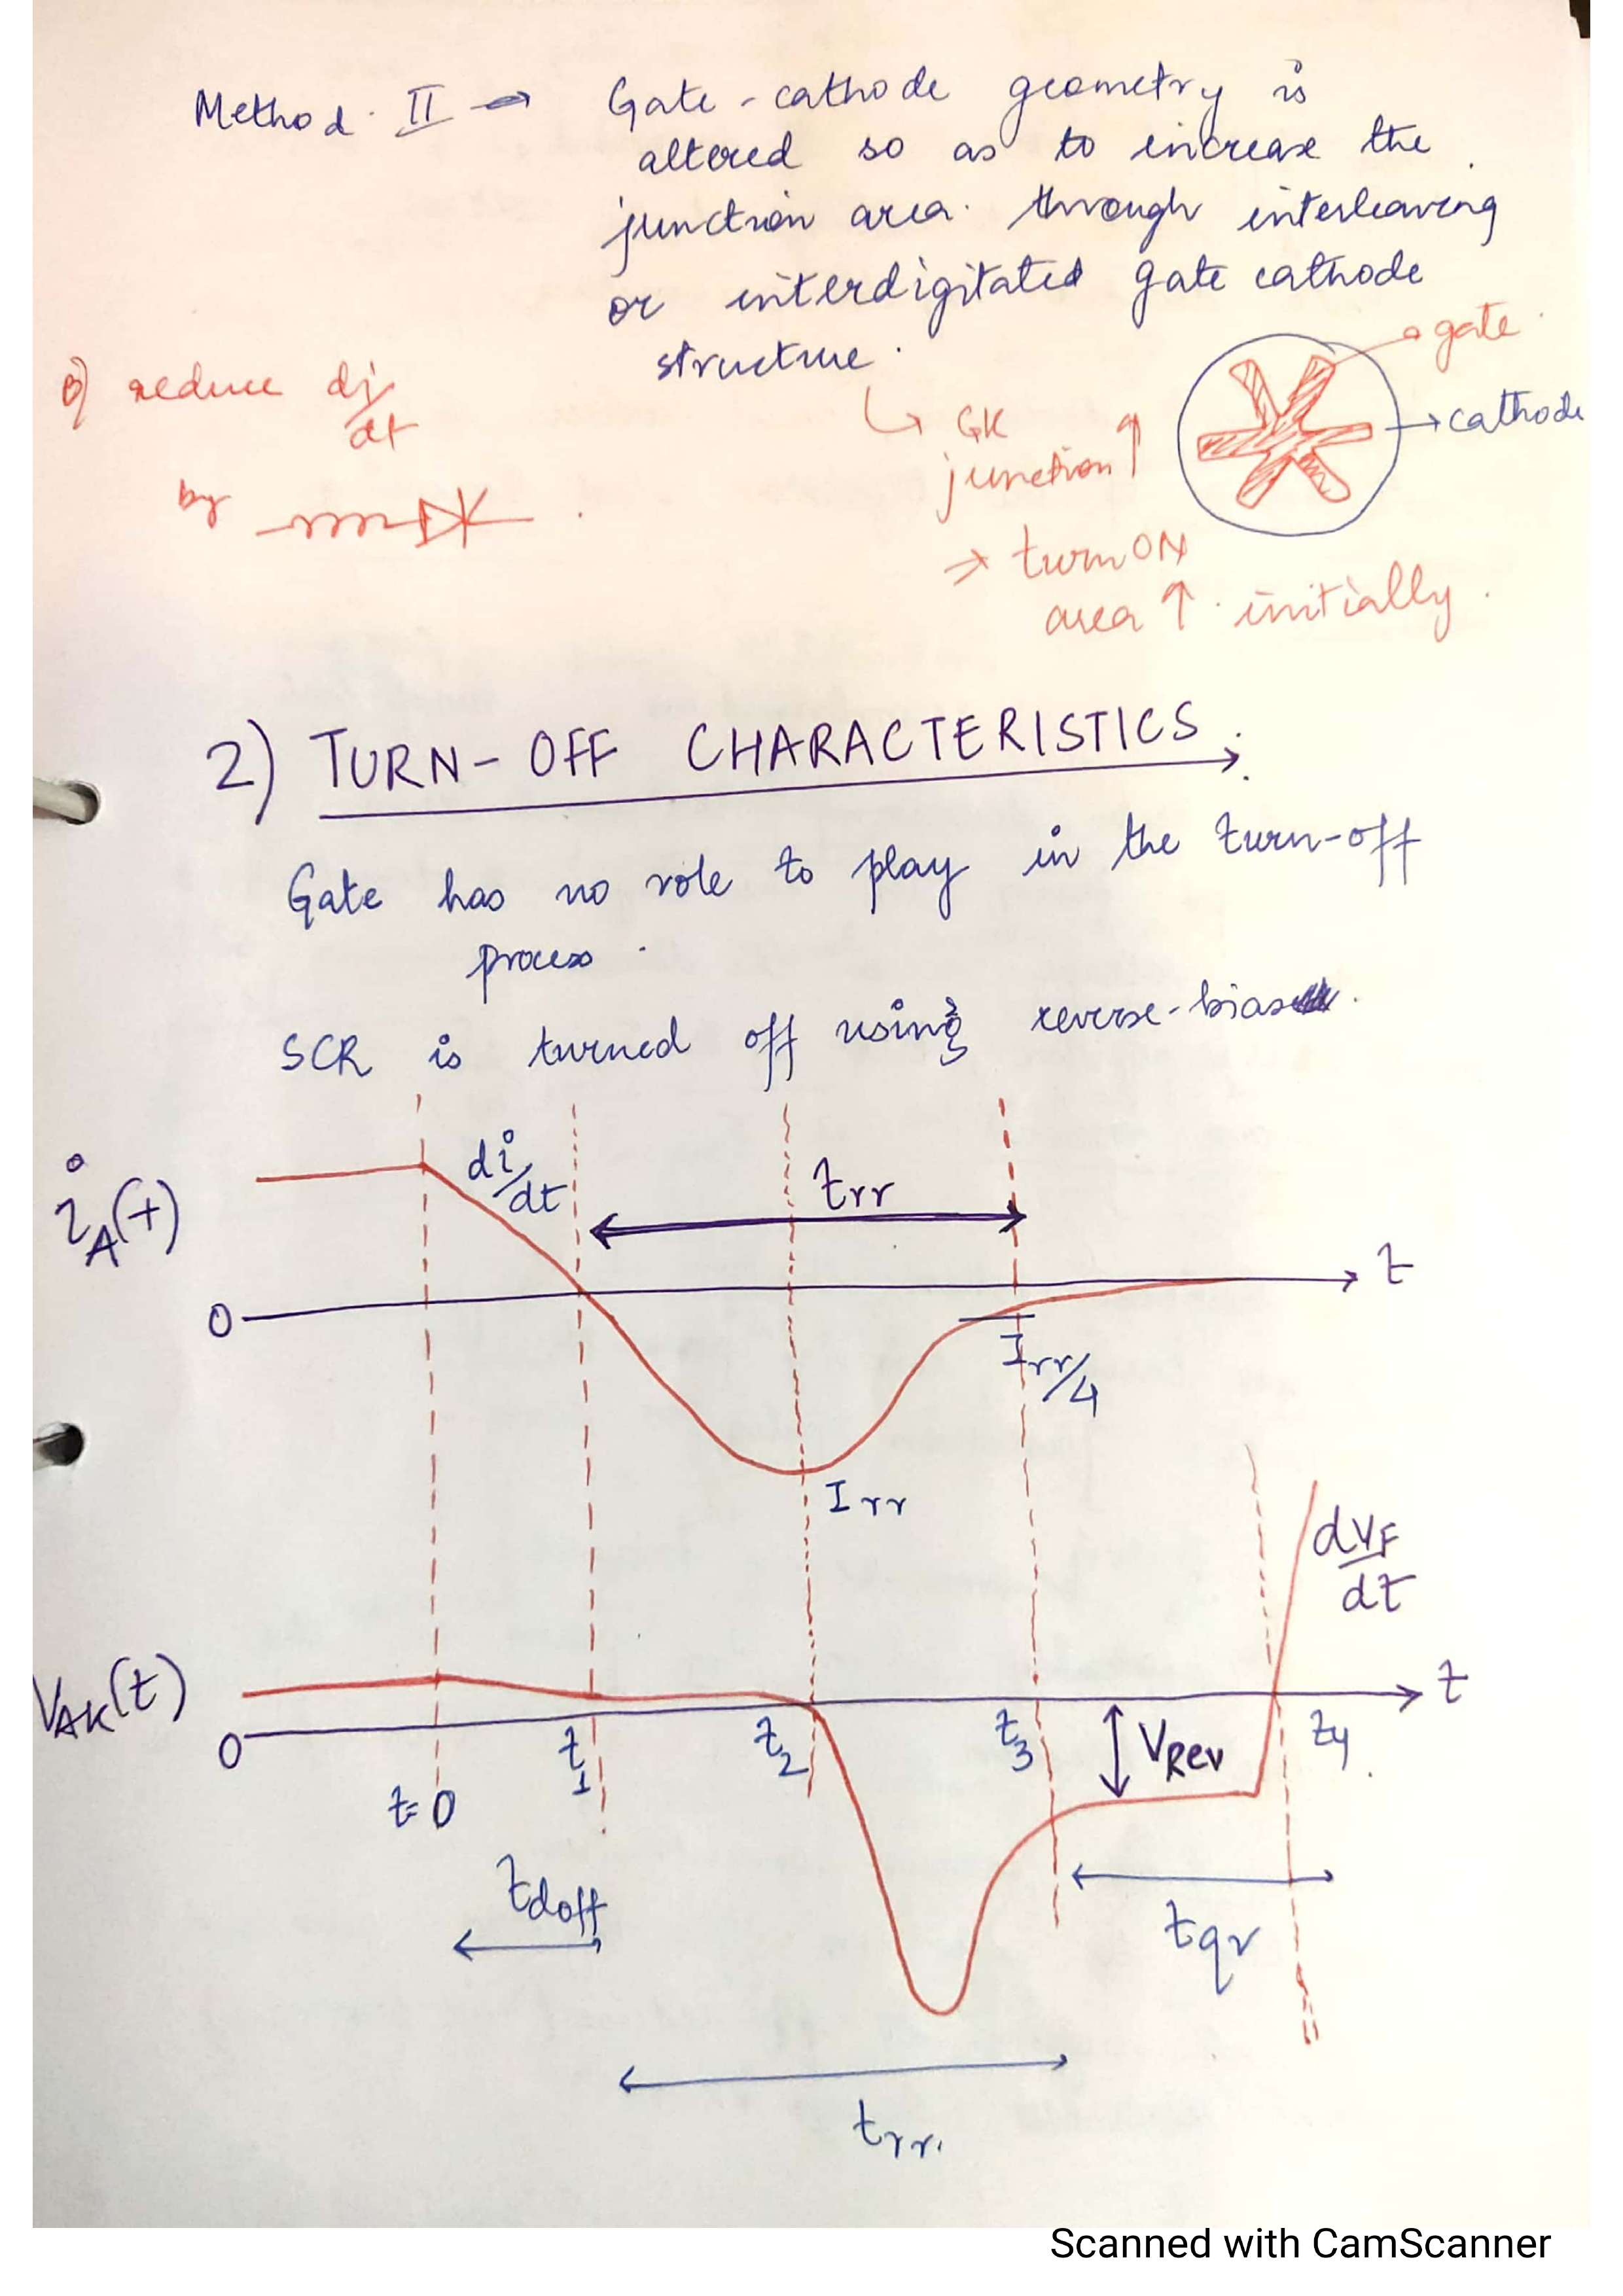 Method. II → Gate - cathode geometry is
altered so as to increase the
junction area. through interleaving
or interdigitated gate cathode
structure.
gate
cathode
↳ GK
junction ↑
⇒ turn ON
area ↑ initially.
reduce di/dt
by
2) TURN-OFF CHARACTERISTICS
Gate has no role to play in the turn-off
process.
SCR is turned off using reverse-bias
di/dt
trr
iA(t)
t
0
Irr/4
Irr
dVF/dt
VAK(t)
t
0
t=0
t1
t2
t3
VRev
t4
tdoff
tqr
trr.
Scanned with CamScanner